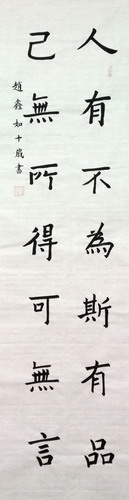 人有不為斯有品
己無所得可無言
趙鑫如十歲書